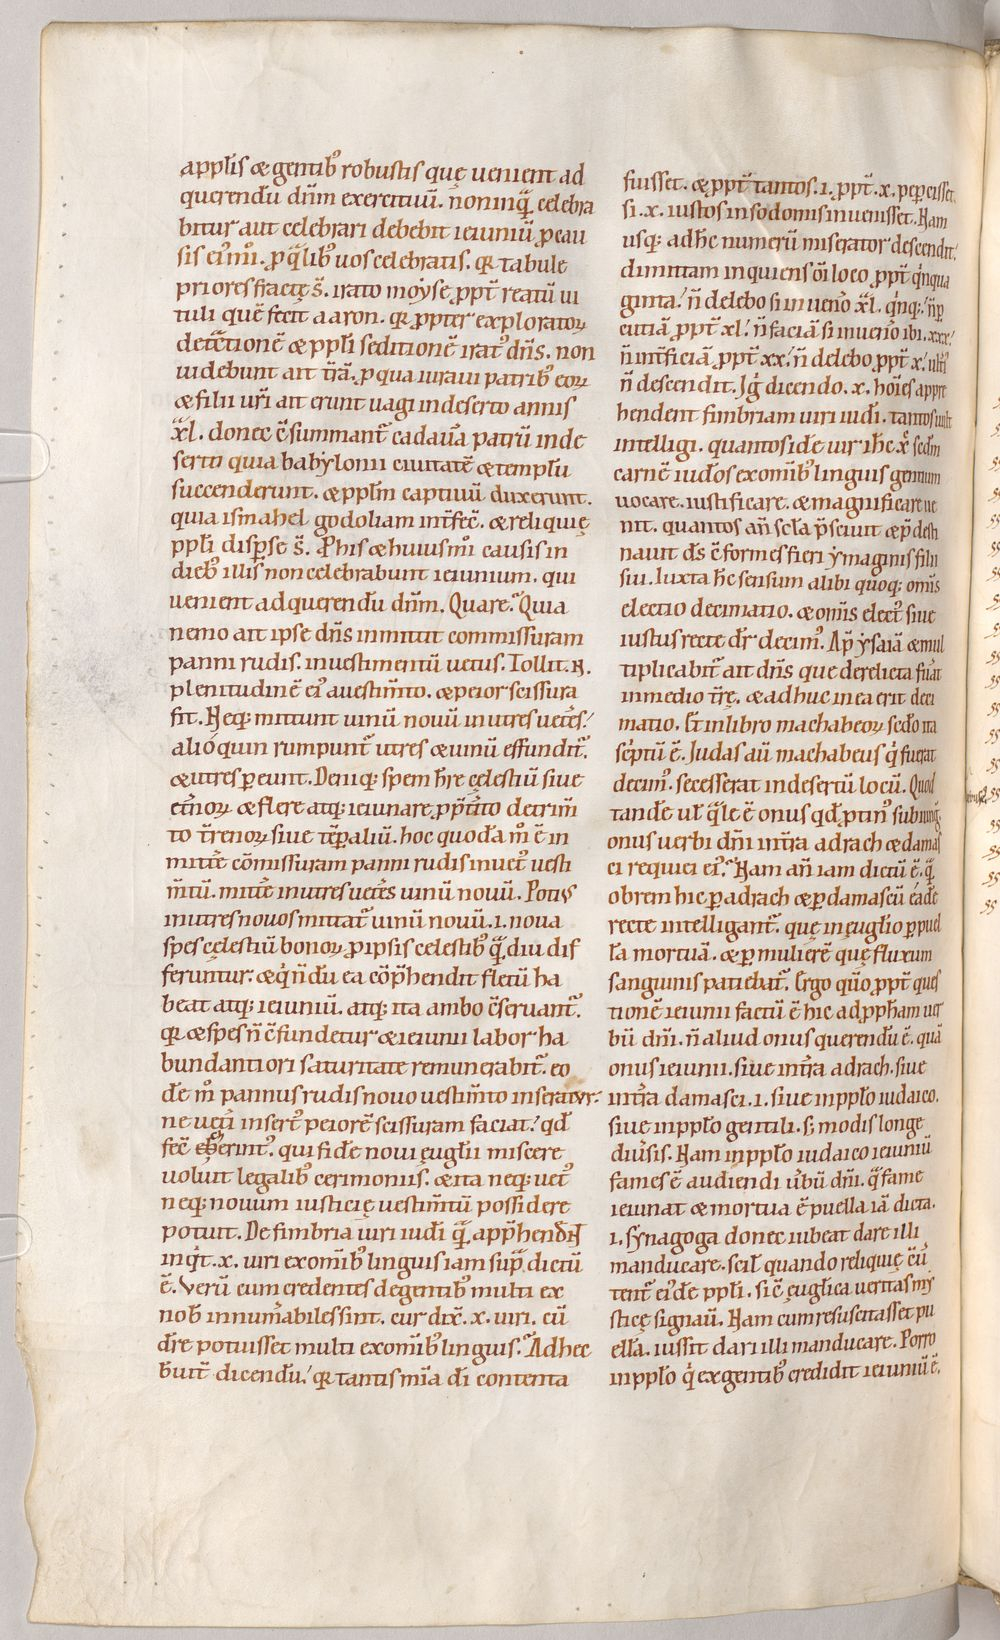 appl̄is & gentib; robustis quę uenient ad
querendū dn̄m exercituū. non inq̄ celebra
bitur aut celebrari debebit ieiuniū p cau
sis ei' mōi. p q̄lib; uos celebratis. qr tabule
priores fractę s̄. irato moẏse ppt̄ reatū ui
tuli quē fecit aaron. qr propter exploratoꝝ
detc̄tionē & pp̄li seditionē irat' dn̄s. non
uidebunt ait tr̄ā. p qua iuraui patrib; eoꝝ
& filii ur̄i ait erunt uagi in deserto annis
xl. donec c̄summant̄ cadau̾a patrū in de
serto quia babẏlonii ciuitatē & templū
succenderunt. & pp̄lm captiuū duxerunt.
quia ismahel godoliam int̄fec̄. & reliquię
pp̄li disꝑse s̄. P his & huiusmōi causis in
dieb; illis non celebrabunt ieiunium. qui
uenient ad querendū dn̄m. Quare? Quia
nemo ait ipse dn̄s inmittit commissuram
panni rudis. in uestimentū uetus. Tollit. N.
plenitudinē ei' a uestim̄to. & peior scissura
fit. Neq; mittunt uinū nouū in utres uet̄es!
alióquin rumpunt̄ utres & uinū effundit̄.
& utres ꝑeunt. Deniq; spem hr̄e cęlestiū siue
et̄noꝝ & flere atq; ieiunare p pt̄ito detrim̄
to tr̄renoꝝ siue tēꝑaliū. hoc quodā mō ē in
mitt̄e cōmissuram panni rudis in uet' uesti
m̄tū. mitt̄e in utres uet̄es uinū nouū. Potius
in utres nouos mittat̄ uinū nouū. i. noua
spes cęlestiū bonoꝝ p ipsis celestib; q̄ diu dif
feruntur. & q' n̄dū ea cōp̄hendit fletū ha
beat atq; ieiuniū. atq; ita ambo c̄seruant̄.
qr & spes n̄ c̄fundetur & ieiunii labor ha
bundantiori saturitate remunerabit̄. eo
dē mō pannus rudis nouo uestim̄to inseratur.
ne uet̄i insert' peiorē scissuram faciat! qd̄
fec̄ erint'. qui fidē noui euglīi miscere
uoluit legalib; cerimoniis. & ita neq; uet'
neq; nouum iusticię uestim̄tū possidere
potuit. De fimbria uiri iudi q̄ app̄hendN̄
inq't. x. uiri ex omib; linguis iam sup̄ dictū
ē. Verū cum credentes de gentib; multi ex
nob̄ innum̄abiles sint. cur dix̄. x. uiri. cū
dr̄e potuisset multi ex omib; linguis? Adhec
buit̄ dicendū! qr tantis mīa dī contenta
fuisset. & ppt̄ tantos. i. ppt̄. x. peꝑcisset.
si. x. iustos in sodomis inuenisset. Nam
usq; ad hc̄ numerū miserator descendit!
dimittam inquiens oī loco ppt̄ q'nqua
ginta! n̄ delebo si inuen̄o xl. q'nq;! n̄ ꝑ
cutiā ppt̄ xl! n̄ faciā si inuen̄o ibi. xxx!
n̄ int̄ficiā ppt̄ xx! n̄ delebo ppt̄ x! ult̄i
n̄ descendit. Ig' dicendo. x. hoīes appre
hendent fimbriam uiri iudi. tantos uult
intelligi. quantos idē uir ih̄c x̄c sed̄m
carnē iudos ex omib; linguis gentium
uocare. iustificare. & magnificare ue
nit. quantos an̄ sc̄la p̄sciuit & p̄desti
nauit dс̄ c̄formes fieri ẏmaginis filii
sui. Iuxta hc̄ sensum alibi quoq; om̄is
electio decimatio. & om̄is elect' siue
iustus recte dr̄ decim'. Ap̄ ẏsaiā & mul
tiplicabit̄ ait dn̄s que derelicta fuat
in medio tr̄ę. & adhuc in ea erit deci
matio. Et in libro machabeoꝝ sed̄o ita
sc'ptū ē. Iudas aū machabeus q' fuerat
decim'. secesserat in desertū locū. Quod
tandē ul̄ q̄le ē onus qd̄ ptin' subiunḡ
onus uerbi dn̄i in tr̄a adrach & damas
ci requiei ei'? Nam an̄ iam dictū ē. q̄
obrem hic ꝑ adrach & ꝑ damascū eadē
recte intelligant̄. quę in euglīo ꝑ puel
la mortuā. & ꝑ mulierē quę fluxum
sanguinis patiebat̄. Ergo quō ppt̄ ques
tionē ieiunii factū ē hic ad pphām uer
bū dn̄i. n̄ aliud onus querendū ē. quā
onus ieiunii. siue in tr̄a adrach. siue
in tr̄a damasci. i. siue in pp̄lo iudaico.
siue in pp̄lo gentili. s; modis longe
diu̾sis. Nam in pp̄lo iudaico ieiuniū
fames ē audiendi u̾bū dn̄i. q̄ fame
ieiunat & mortua ē puella iā dicta.
i. sẏnagoga donec iubeat dare illi
manducare. scil̄ quando reliquię c̄u̾
tent̄ ei'dē pp̄li. sic̄ euglīca ueritas mẏ
sticę signau̾. Nam cum resuscitasset pu
ellā. iussit dari illi manducare. Porro
in pp̄lo q' ex gentib; credidit ieiuniū ē.